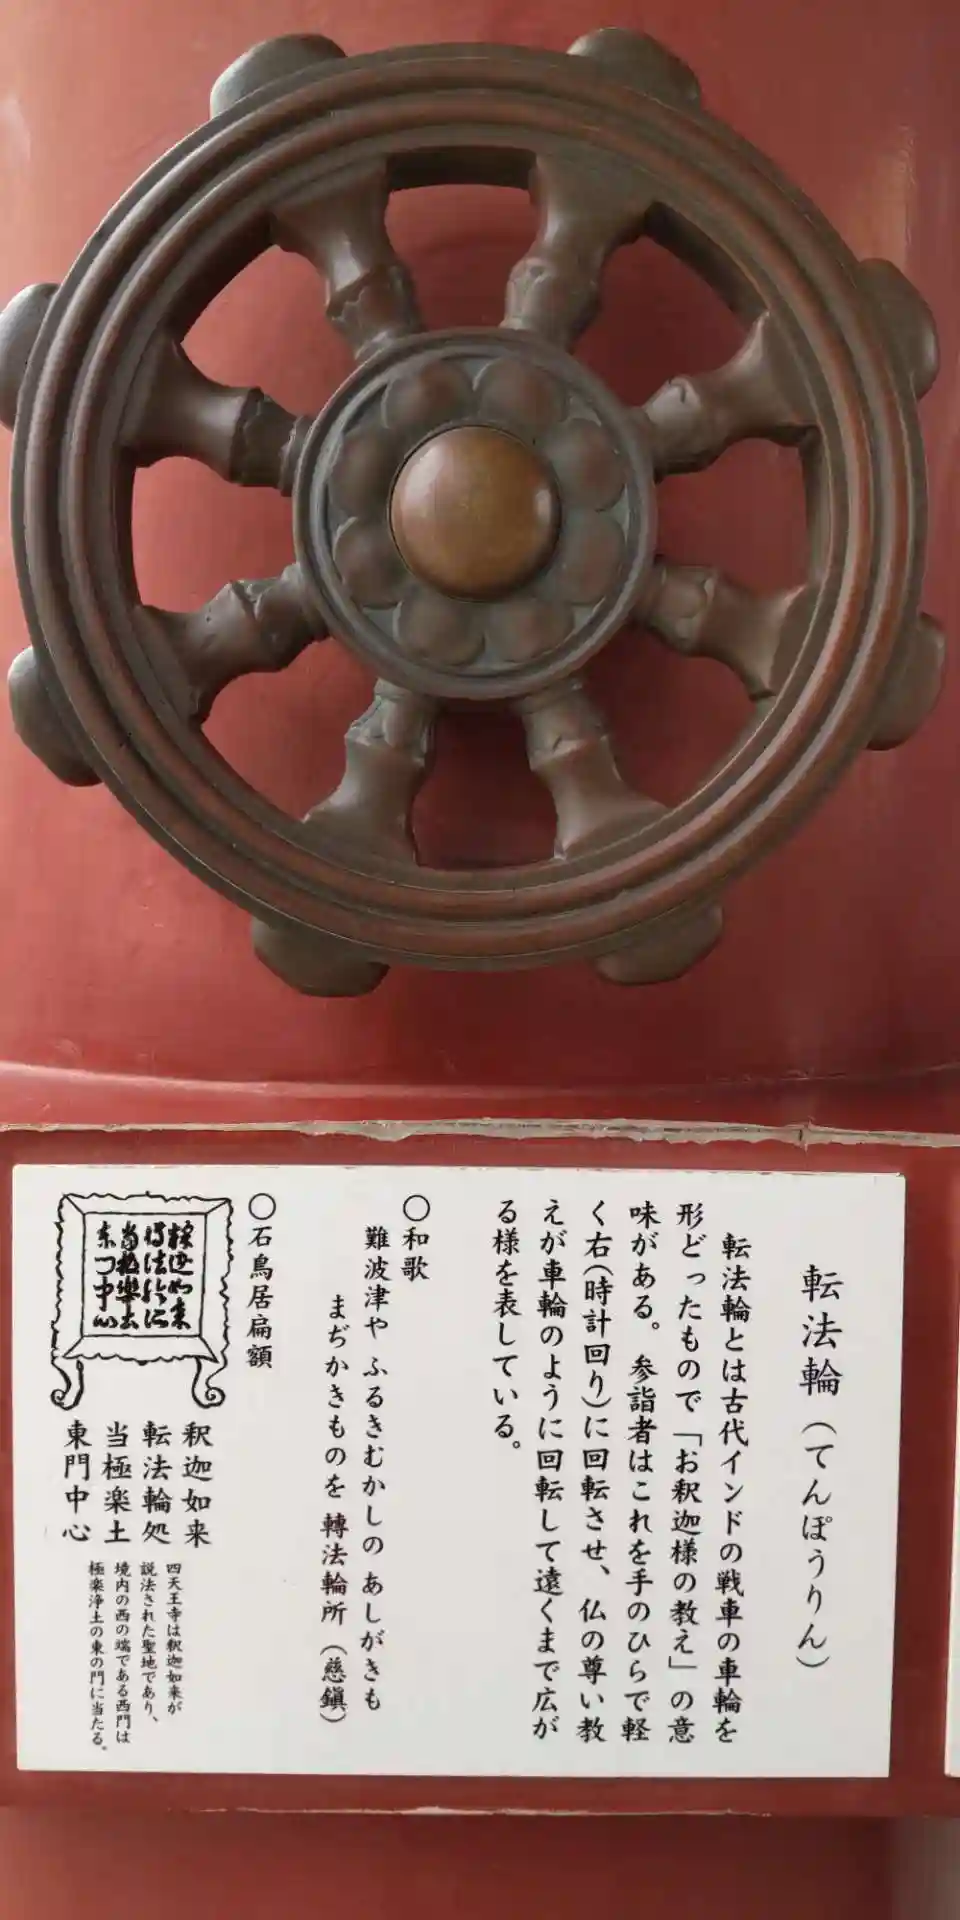 転法輪（てんぽうりん）
転法輪とは古代インドの戦車の車輪を
形どったもので「お釈迦様の教え」の意
味がある。参詣者はこれを手のひらで軽
く右（時計回り）に回転させ、仏の尊い教
えが車輪のように回転して遠くまで広が
る様を表している。
〇和歌
難波津や ふるきむかしの あしがきも
まぢかきものを 轉法輪所（慈鎭）
〇石鳥居扁額
釈迦如来
転法輪処
当極楽土
東門中心
釈迦如来
転法輪処
当極楽土
東門中心
四天王寺は釈迦如来が
説法された聖地であり、
境内の西の端である西門は
極楽浄土の東の門に当たる。